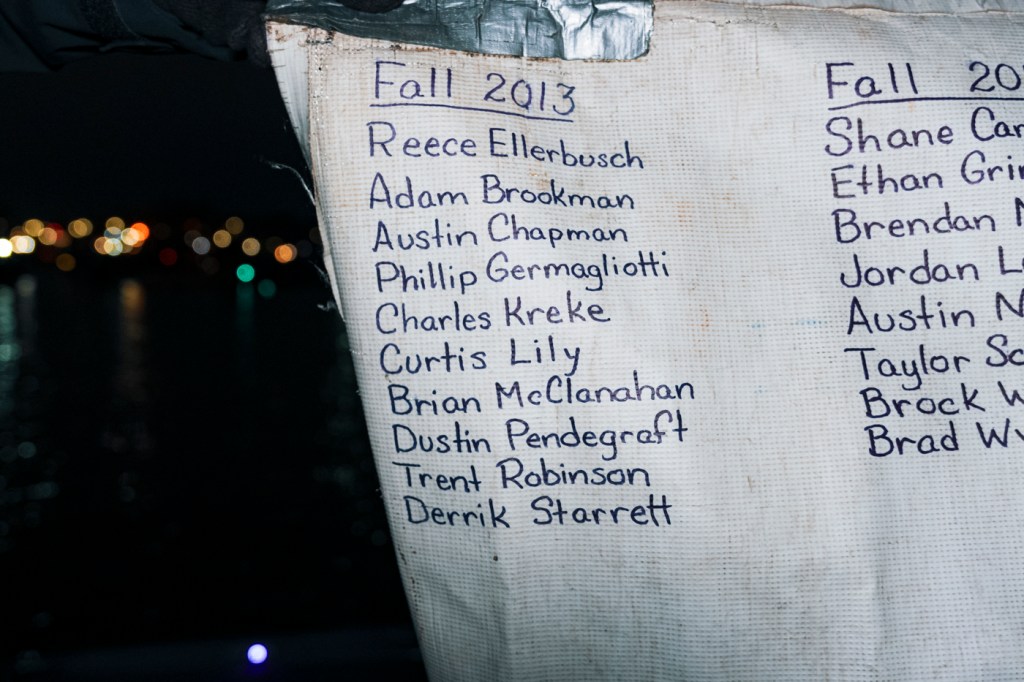 Fall 2013
Reece Ellerbusch
Adam Brookman
Austin Chapman
Phillip Germagliotti
Charles Kreke
Curtis Lily
Brian McClanahan
Dustin Pendegraft
Trent Robinson
Derrik Starrett
Fall
Shane
Ethan
Brendan
Jordan
Austin
Taylor
Brock
Brad